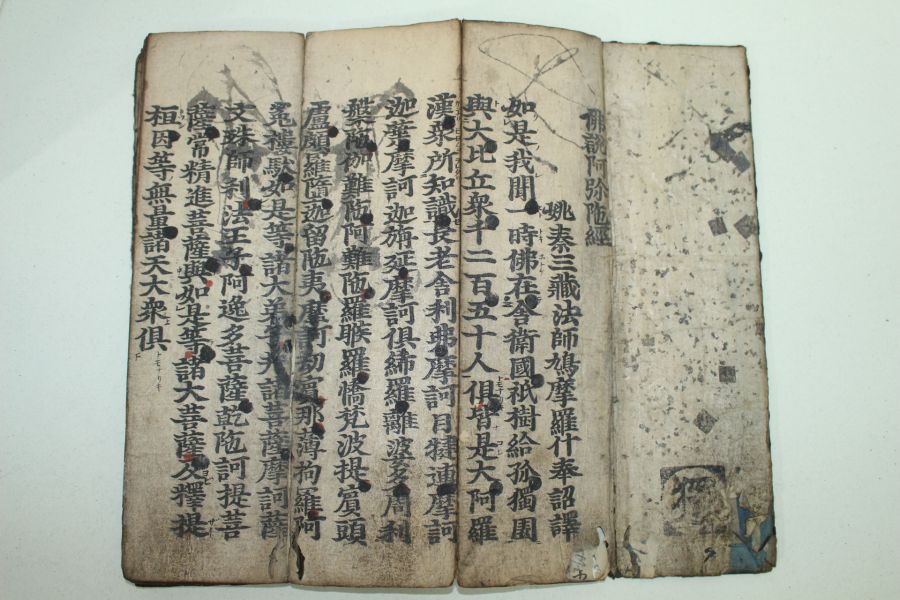 佛說阿弥陁經
姚秦三藏法師鳩摩羅什奉詔譯
如是我聞一時佛在舍衛國祇樹給孤獨園
與大比丘衆千二百五十人俱皆是大阿羅
漢衆所知識長老舍利弗摩訶目犍連摩訶
迦葉摩訶迦旃延摩訶俱絺羅離波多周利
槃陁伽難陁阿難陁羅睺羅憍梵波提賓頭
盧頗羅隨迦留陁夷摩訶劫賓那薄拘羅阿
㝹樓馱如是等諸大弟子并諸菩薩摩訶薩
文殊師利法王子阿逸多菩薩乾陁訶提菩
薩常精進菩薩與如是等諸大菩薩及釋提
桓因等無量諸天大衆俱